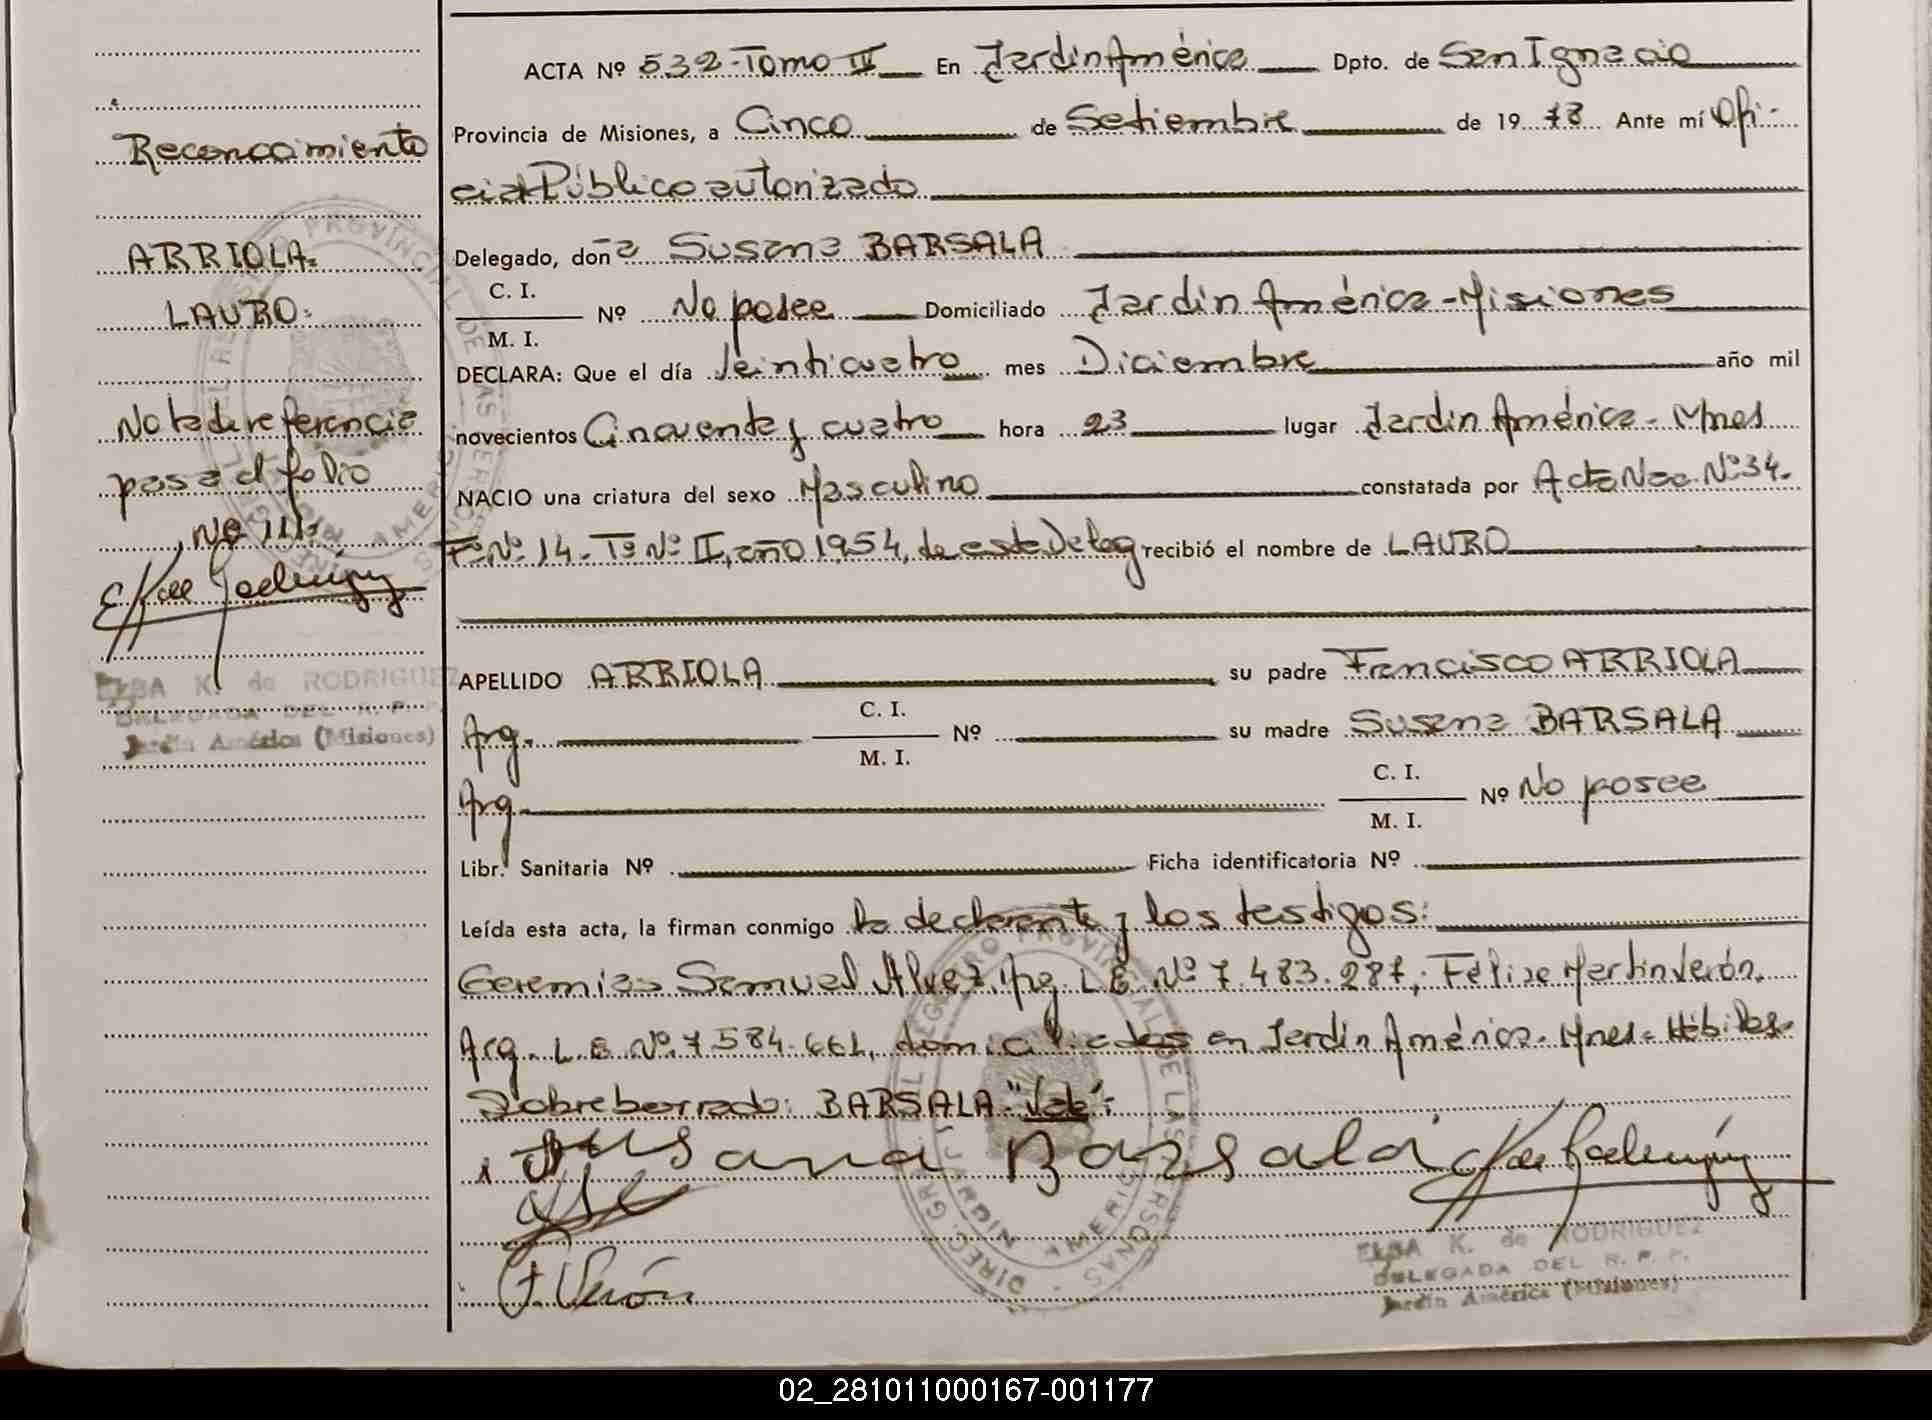 Reconocimiento
ARRIOLA.
LAURO.
Nota de referencia
pasa al folio
Nº 111.
ELBA K. de RODRIGUEZ
DELEGADA DEL R. P. P.
Jardín América (Misiones)
ACTA Nº 532-Tomo II En Jardin América Dpto. de San Ignacio
Provincia de Misiones, a Cinco de Setiembre de 1973 Ante mí Ofi-
cial Público autorizado
Delegado, doña Susana BARSALA
C. I.
M. I.
Nº No posee Domiciliado Jardin América-Misiones
DECLARA: Que el día Veinticuatro mes Diciembre año mil
novecientos Cincuenta y cuatro hora 23 lugar Jardin América-Mnes
NACIO una criatura del sexo Masculino constatada por Acta Nac. Nº 34.
Fº Nº 14. Tº Nº II, año 1954, de esta Deleg recibió el nombre de LAURO
APELLIDO ARRIOLA su padre Francisco ARRIOLA
Arg. C. I. M. I. Nº su madre Susana BARSALA
Arg. C. I. M. I. Nº No posee
Libr. Sanitaria Nº Ficha identificatoria Nº
Leída esta acta, la firman conmigo la declarante y los testigos:
Geremias Samuel Alvez. Arg. L.E. Nº 7.483.287; Felipe Martin Verón.
Arg. L.E. Nº 7584.661, domiciliados en Jardin América-Mnes-Hábiles.
Sobreborrado: BARSALA-"Vale".
Susana Barsala
F Verón
ELBA K. de RODRIGUEZ
DELEGADA DEL R. P. P.
Jardín América (Misiones)
02_281011000167-001177